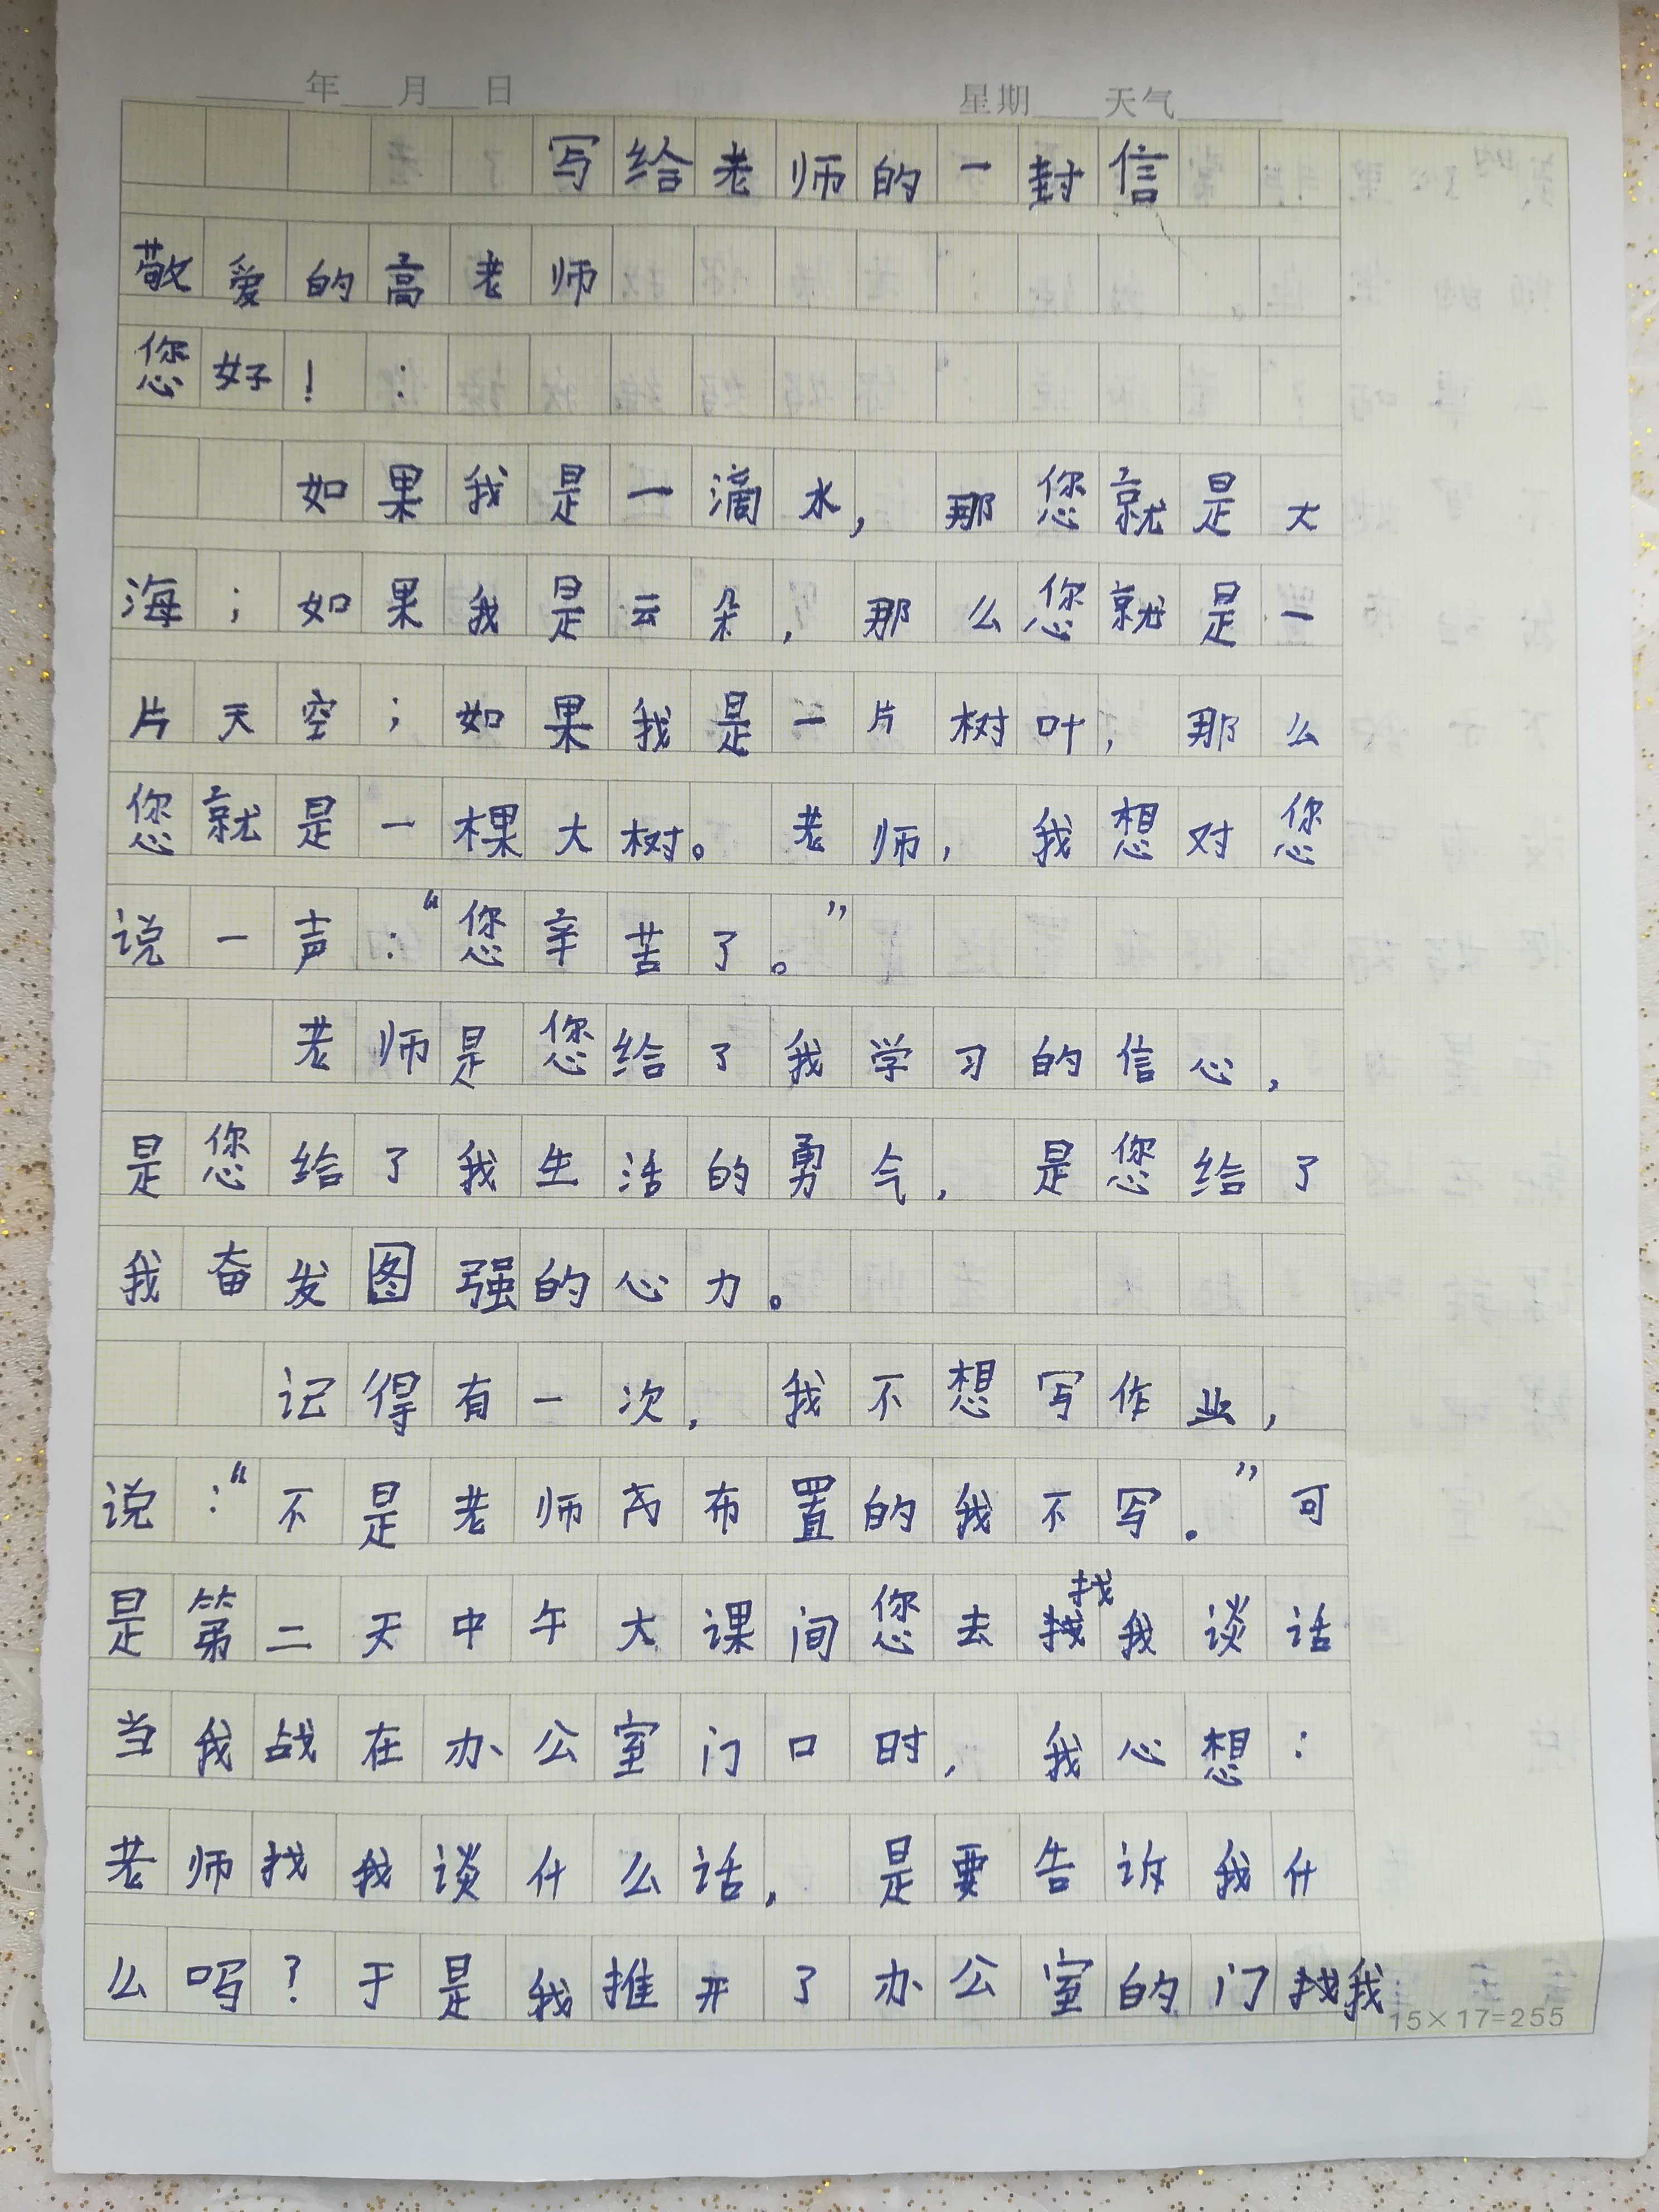 年 月 日 星期 天气
写给老师的一封信
敬爱的高老师
您好！：
如果我是一滴水，那您就是大
海；如果我是云朵，那么您就是一
片天空；如果我是一片树叶，那么
您就是一棵大树。老师，我想对您
说一声：“您辛苦了。”
老师是您给了我学习的信心，
是您给了我生活的勇气，是您给了
我奋发图强的心力。
记得有一次，我不想写作业，
说：“不是老师布置的我不写。”可
是第二天中午大课间您去找我谈话
当我战在办公室门口时，我心想：
老师找我谈什么话，是要告诉我什
么吗？于是我推开了办公室的门找我
15×17=255